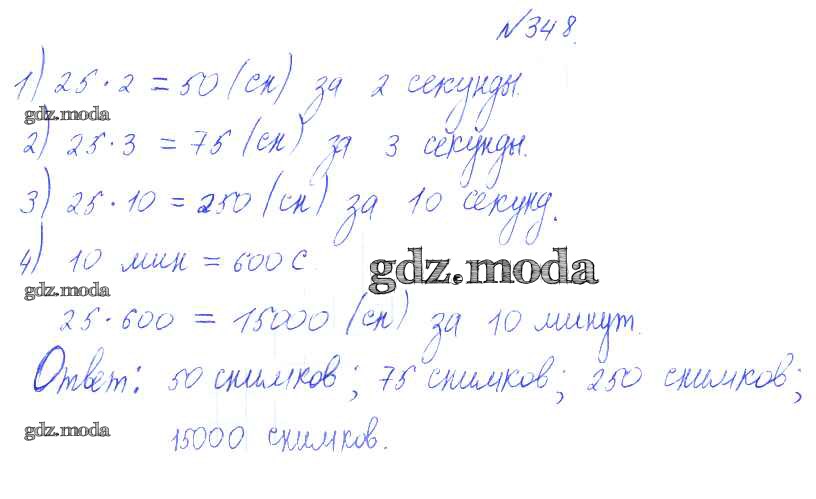 №348.
1) 25 · 2 = 50 (сн) за 2 секунды.
gdz.moda
2) 25 · 3 = 75 (сн) за 3 секунды.
3) 25 · 10 = 250 (сн) за 10 секунд.
4) 10 мин = 600 с.
gdz.moda
gdz.moda
25 · 600 = 15000 (сн) за 10 минут.
Ответ: 50 снимков; 75 снимков; 250 снимков;
gdz.moda
15000 снимков.